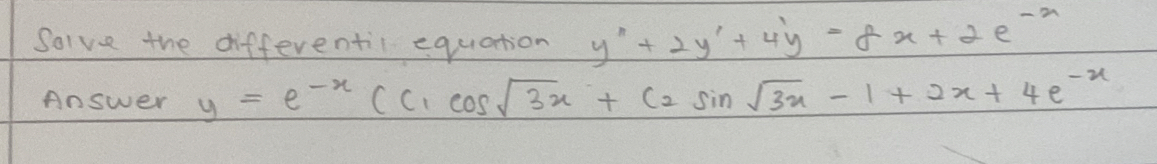 Solve the differentil equation y" + 2y' + 4y = 8x + 2e^-x
Answer y = e^-x (C1 cos√3x + C2 sin √3x - 1 + 2x + 4e^-x